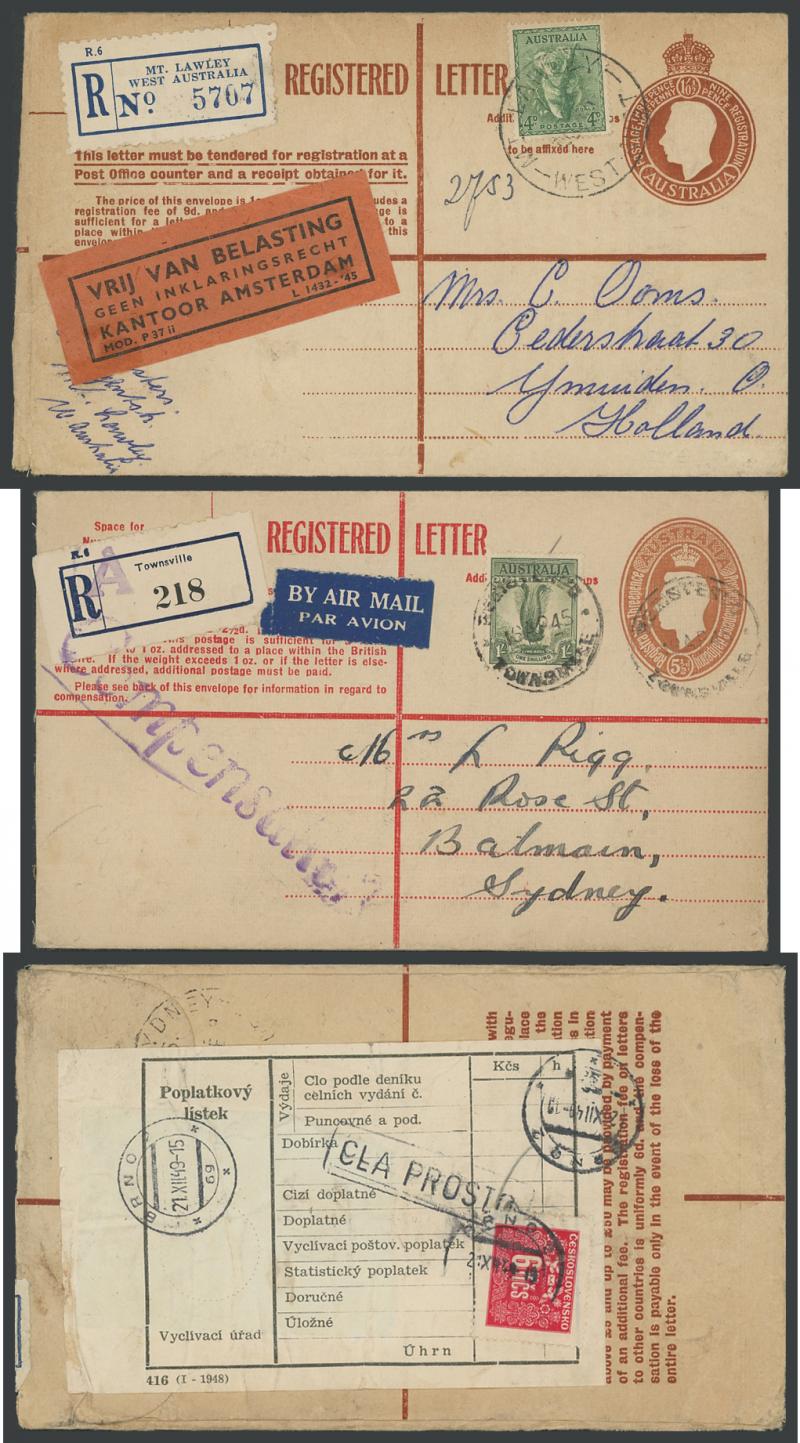 R.6
MT. LAWLEY
WEST AUSTRALIA
R No 5707
REGISTERED LETTER
AUSTRALIA
4D POSTAGE 4D
POSTAGE THREEPENCE HALFPENNY
1/0½
NINE PENCE REGISTRATION
AUSTRALIA
to be affixed here
WEST
This letter must be tendered for registration at a
Post Office counter and a receipt obtained for it.
The price of this envelope is
registration fee of 9d. and
sufficient for a
place within
envelope
2753
VRIJ VAN BELASTING
GEEN INKLARINGSRECHT
KANTOOR AMSTERDAM
MOD. P37ii L 1432-'45
Mrs. C. Ooms.
Cederstraat 30
Ymuiden. O.
Holland.
Lawley.
W Australia
Space for
REGISTERED LETTER
R.6
Townsville
R 218
BY AIR MAIL
PAR AVION
AUSTRALIA
1/- ONE SHILLING 1/-
TOWNSVILLE
AUSTRALIA
5½D
TOWNSVILLE
2½d.
this postage is sufficient for
1 oz. addressed to a place within the British
If the weight exceeds 1 oz. or if the letter is else-
where addressed, additional postage must be paid.
Please see back of this envelope for information in regard to
compensation.
Compensation
Mrs L Rigg.
22 Rose St,
Balmain,
Sydney.
SYDNEY
Poplatkový
lístek
Výdaje
Clo podle deníku
celních vydání č.
Puncovné a pod.
Kčs h
Dobírka
CLA PROSTÉ
Cizí doplatné
Doplatné
Vyclívací poštov. poplatek
Statistický poplatek
Doručné
Úložné
Úhrn
Vyclívací úřad
416 (I - 1948)
BRNO
21.XII.49-15
ČESKOSLOVENSKO
6 KČS
above £5 and up to £50 may be provided, by payment
of an additional fee. The registration fee on letters
to other countries is uniformly 6d. and the compen-
sation is payable only in the event of the loss of the
entire letter.